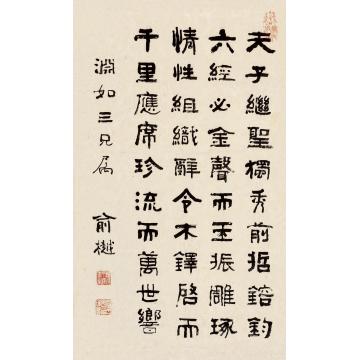 夫子繼聖獨秀前哲鎔鈞
六經必金聲而玉振雕琢
情性組織辭令木鐸啓而
千里應席珍流而萬世響
淵如三兄屬
俞樾